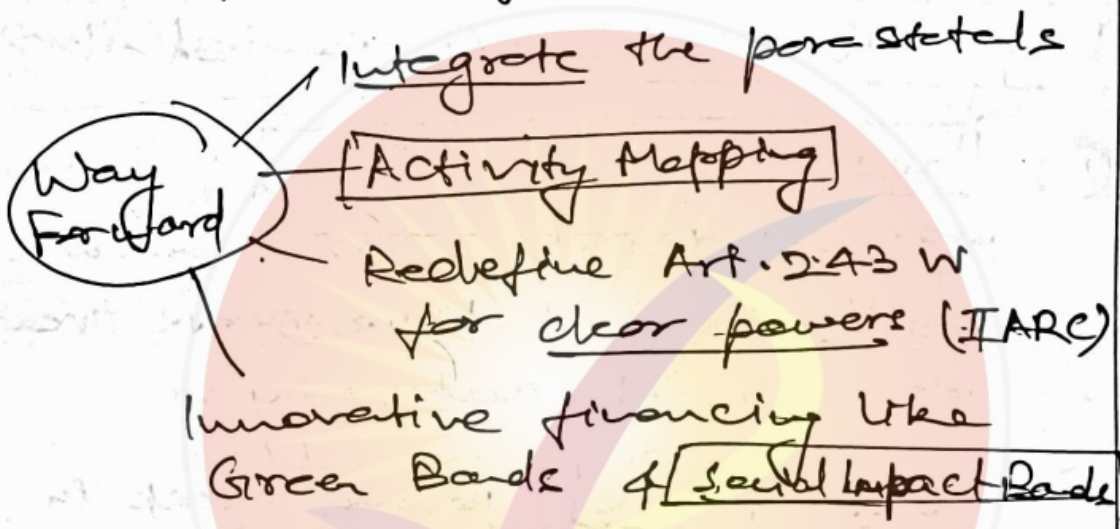 Integrate the parastatals
Way Forward
Activity Mapping
Redefine Art. 243 W
for clear powers (IIARC)
Innovative financing like
Green Bonds & Social Impact Bonds